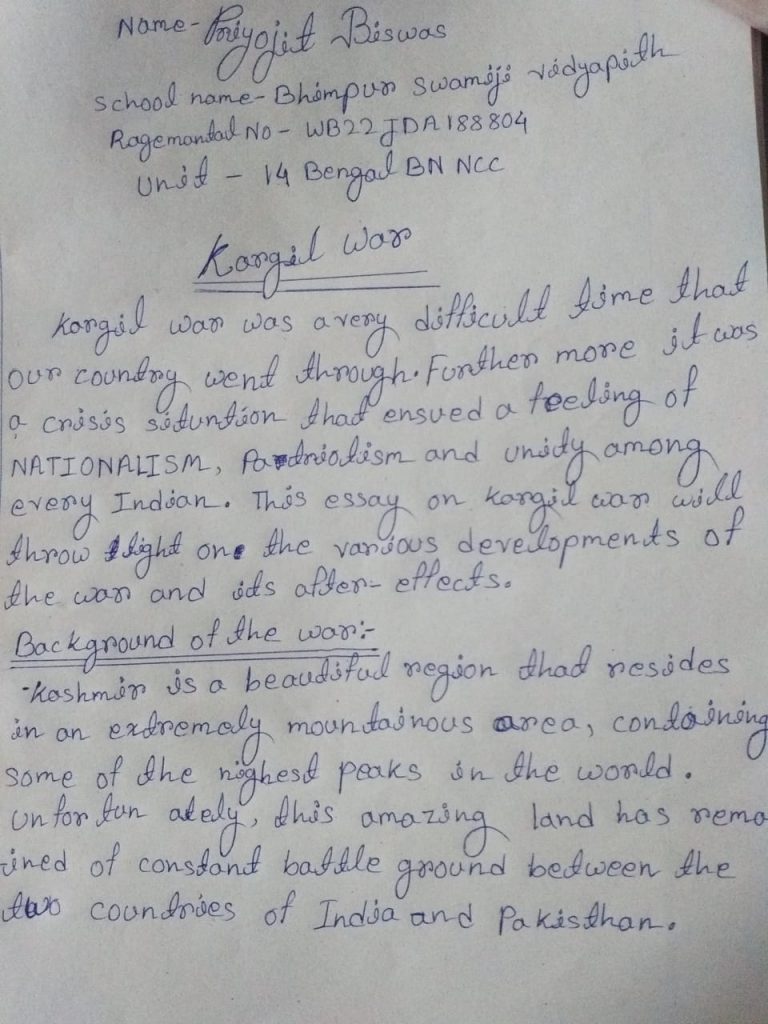 Name- Priyojit Biswas
School name- Bhimpur Swamiji vidyapith
Ragemantal No - WB22JDA188804
Unit - 14 Bengal BN NCC
Kargil War
Kargil war was a very difficult time that
our country went through. Further more it was
a crisis situntion that ensued a feeling of
NATIONALISM, Patriotism and unity among
every Indian. This essay on kargil war will
throw light one the various developments of
the war and its after-effects.
Background of the war:-
-Kashmir is a beautiful region that resides
in an extremely mountainous area, containing
some of the highest peaks in the world.
Unfor tun ately, this amazing land has rema
ined of constant battle ground between the
two countries of India and Pakisthan.